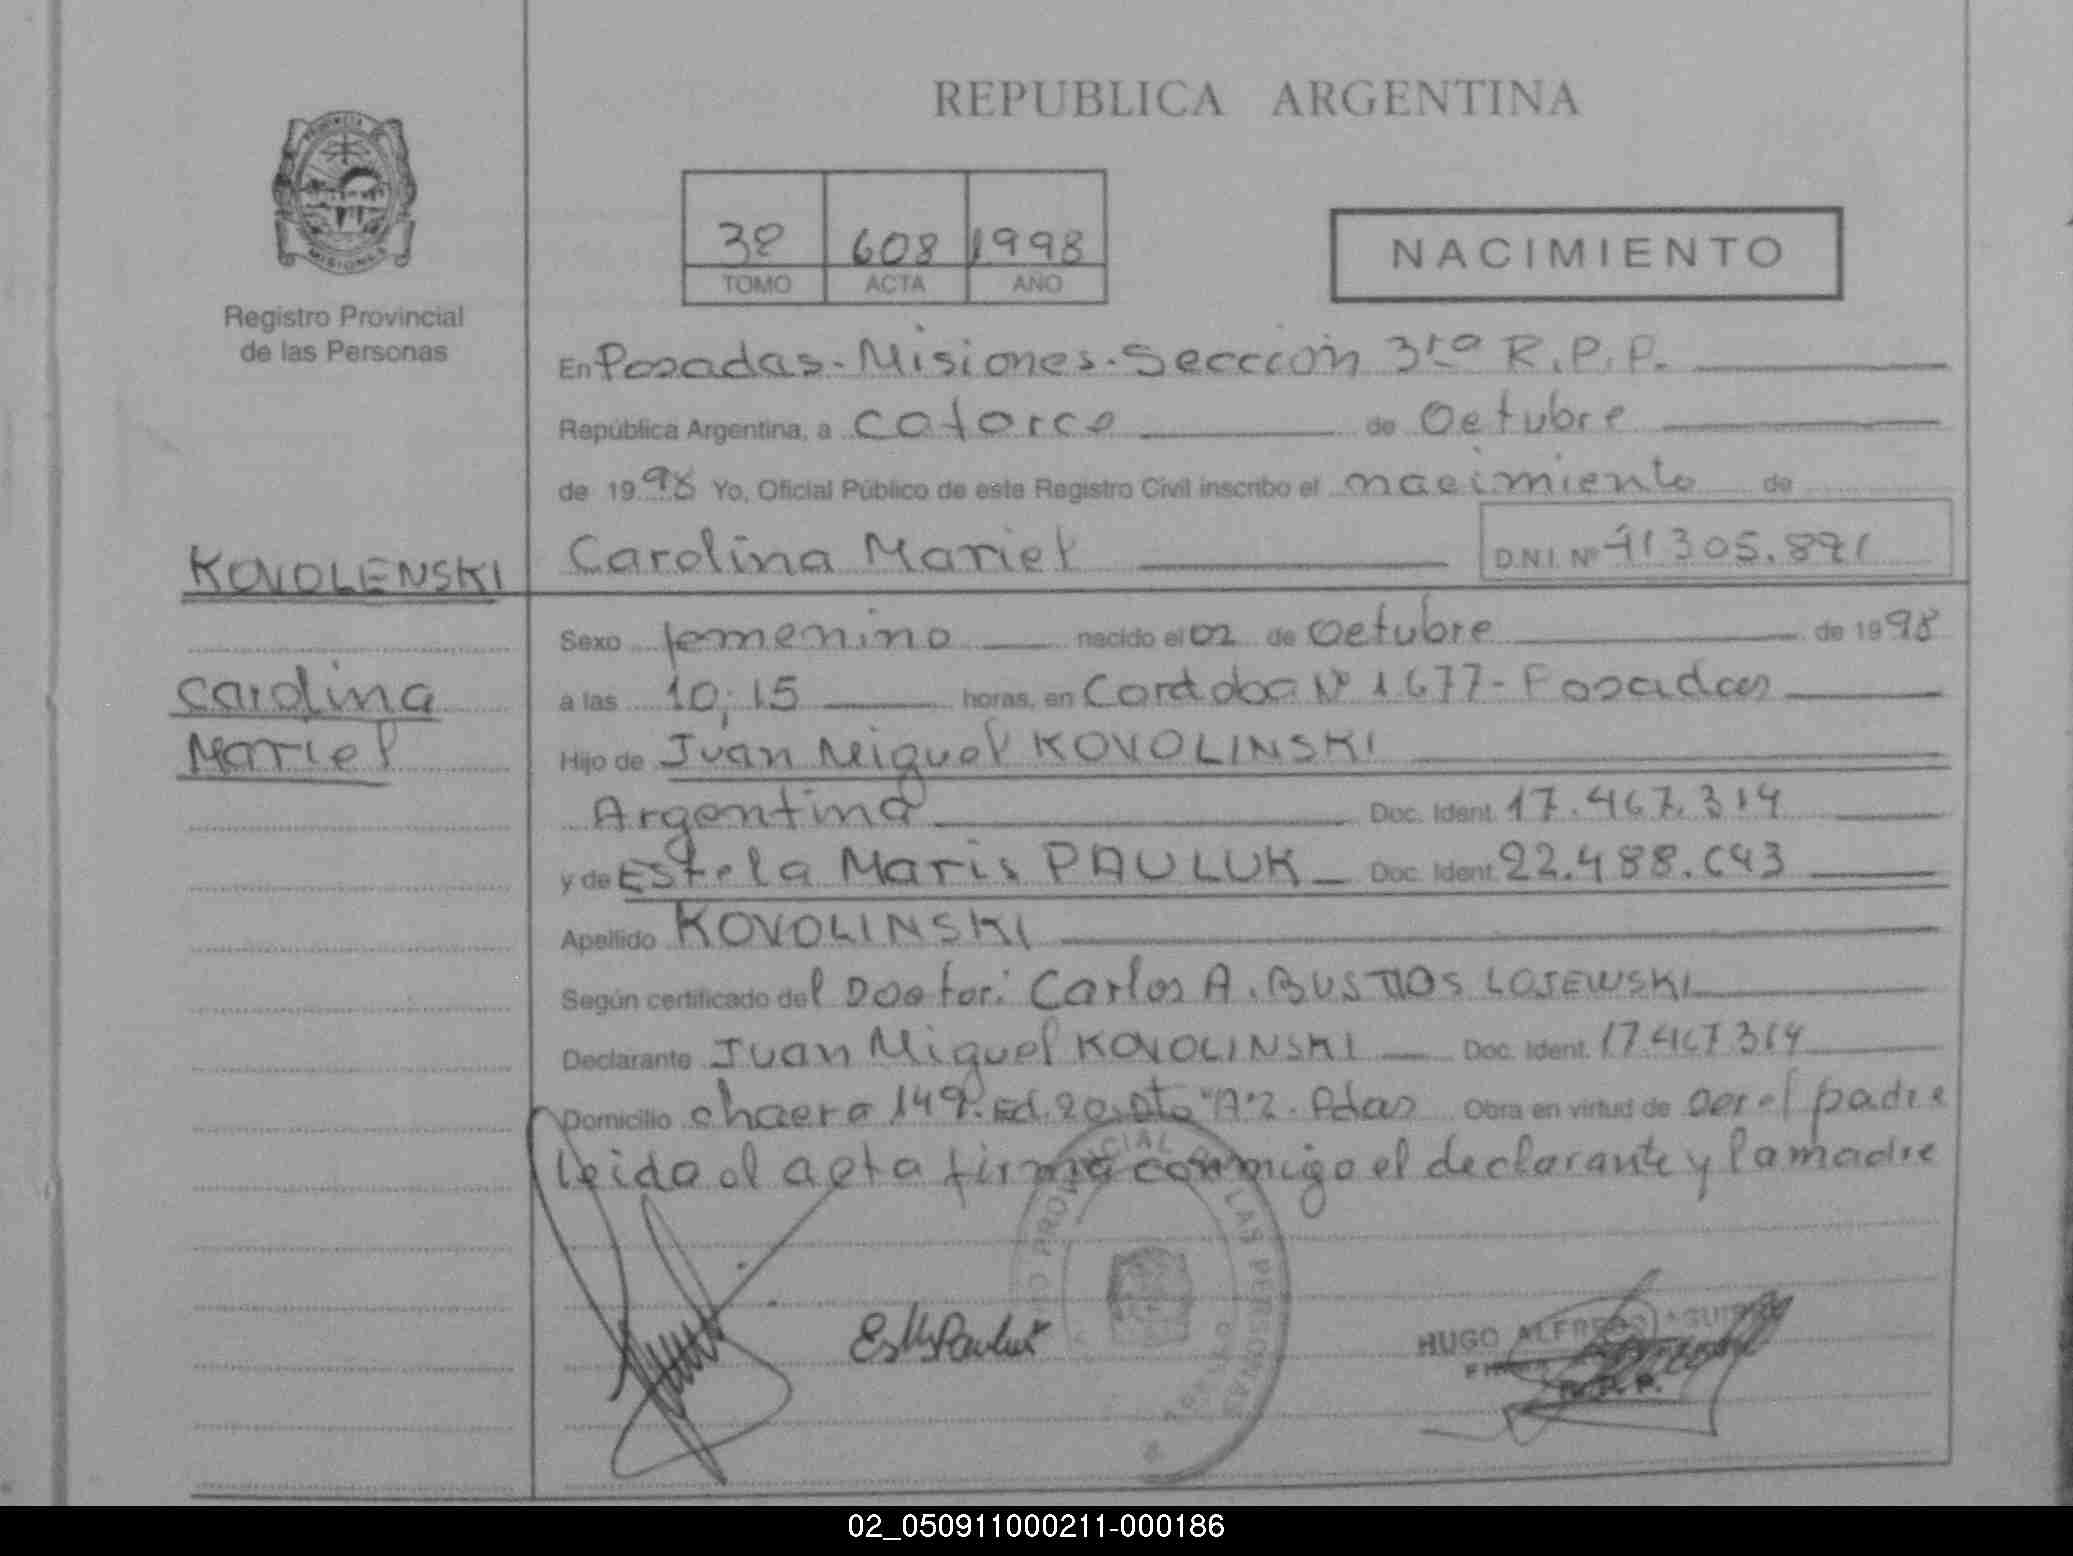 REPUBLICA ARGENTINA
PROVINCIA DE
MISIONES
Registro Provincial
de las Personas
608 1998
TOMO ACTA AÑO
NACIMIENTO
En Posadas-Misiones-Seccción 3ra R.P.P.
República Argentina, a catorce de Octubre
de 1998 Yo, Oficial Público de este Registro Civil inscribo el nacimiento de
Carolina Mariel D.N.I. Nº 41305.821
KOVOLENSKI
Carolina
Mariel
Sexo femenino nacido el 02 de Octubre de 1998
a las 10,15 horas, en Cordoba Nº 1.677-Posadas
Hijo de Juan Miguel KOVOLINSKI
Argentina Doc. Ident. 17.467.314
y de Estela Maris PAULUK Doc. Ident. 22.488.643
Apellido KOVOLINSKI
Según certificado del Doctor: Carlos A. BUSTTOS LOJEWSKI
Declarante Juan Miguel KOVOLINSKI Doc. Ident. 17.467.314
Domicilio chacra 149. Ed. 20. Dto "A"2. Pdas Obra en virtud de ser el padre
leida el acta firma conmigo el declarante y la madre
LAS PERSONAS
HUGO ALFREDO
R.P.P.
02_050911000211-000186